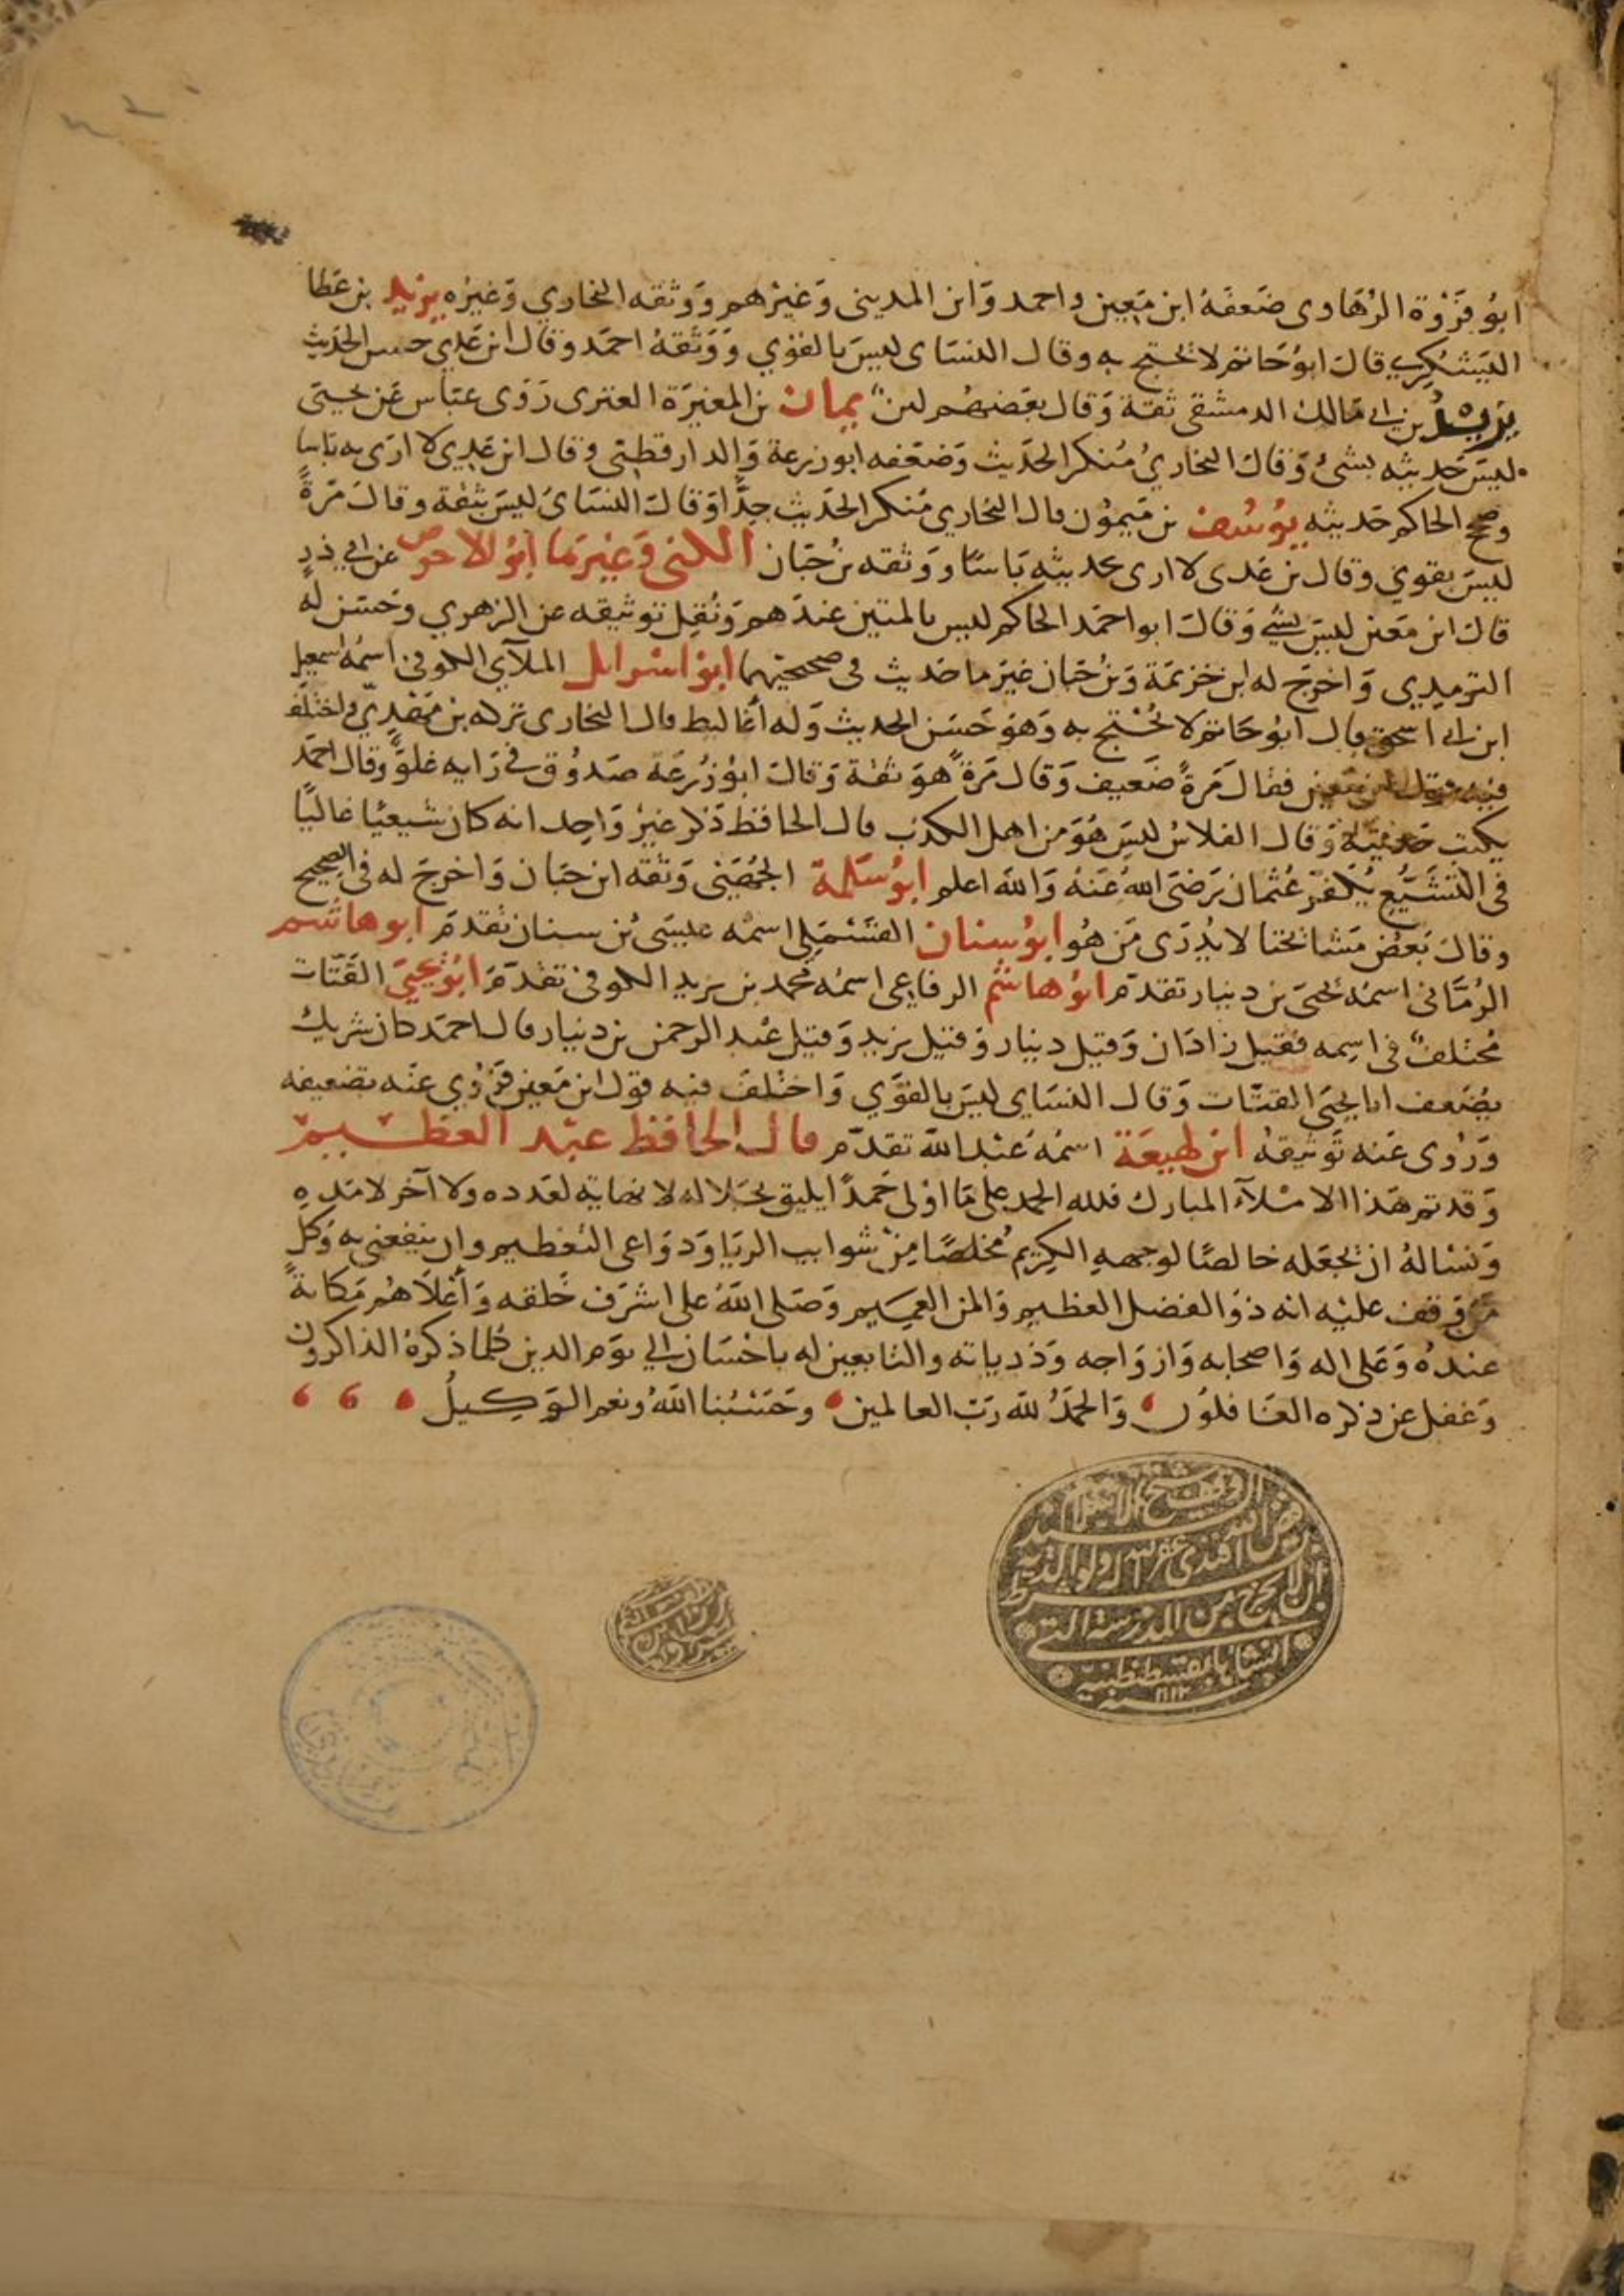 ابُو فَرْوَة الرُهَاوى ضَعفَهُ ابن مَعِين واحمد وَابن المدينى وَغيرهم وَوثقه البخاري وَغيرُه يزيد بن عَطا
اليَشكُرِي قال ابوُ حَاتم لا يحتج به وقال النسَاى ليسَ بالقوي وَوَثقهُ احمَد وقال ابن عَدِي حسن الحَديث
يزيدُ بن ابى مَالك الدمشقى ثقة وَقال بَعضهُم لين يمان بن المغيرَة العنزى رَوَى عبَاس عَن يحيَى
ليسَ حَديثه بشئ وَقال البخاريُ مُنكر الحَديث وَضعَفه ابو زرعة وَالدارقطنى وقال ابن عَدِي لا ارَى به بَاسا
وصحح الحاكم حَديثه يوُسُف بن مَيمُون قال البخاري مُنكر الحَديث جدًّا وَقال النسَاىَ ليسَ بثقة وقال مَرةً
ليسَ بقوي وقال بن عَدى لا ارى بحديثه بَاسًا ووَثقه بن حبَان الكنى وَغيرهَا ابوُ الاحوص عن ابى ذر
قال ابن مَعين ليسَ بشئ وَقال ابو احمَد الحاكم ليس بالمتين عندَهم وَنُقِل توثيقه عن الزهري وحَسَن له
الترمِذِي وَاخرَج له ابن خزيمَة وَبنُ حبَان غيرَ ما حَديث فى صحيحيهما ابوُ اسرايل الملآي الكوفى اسمُهُ اسمعيل
ابن ابى اسحق قال ابوُ حَاتم لا يُحتج به وَهوَ حَسَن الحديث وَله اغاليط قال البخارى تركه بن مَهْدِيّ واختلفَ
فيه قول ابن مَعين فقالَ مَرةً ضَعيف وَقال مَرة هوَ ثقة وَقال ابوُ زُرعَة صَدُوق فى رَايه غلوٌّ وقال احمَد
يكتب حَديثه وَقال الفلاسُ ليسَ هُوَ من اهل الكذب قال الحافظ ذكر غيرُ وَاحِد انه كان شيعيًا غاليًا
فى التشَيُّعِ يُكفّر عُثمان رَضىَ اللهُ عَنهُ وَالله اعلم ابوُ سَلمة الجُهَنى وَثقه ابن حبَان وَاخرجَ له فى الصحيح
وقال بَعضُ مَشائخنا لا يُدْرَى مَن هُو ابوُ سِنان القَسْمَلِى اسمُه عيسَى بُن سنان تقدمَ ابو هاشم
الرُمّانى اسمُهُ يحيىَ بن دينار تقدمَ ابوُ هاشم الرفاعِى اسمُهُ محمد بن يزيد الكوفى تقدّمَ ابوُ يحيىَ القَتّات
مُختلفٌ فى اسِمه فقيل زاذَان وَقيل دينار وَقيل يزيد وَقيل عَبد الرحمن بن دينار قال احمَد كان شريك
يُضَعف ابا يحيَى القتّات وَقال النسَاى ليسَ بالقوَي وَاختلفَ فيه قول ابن مَعين فرُوِي عنه تضعيفه
وَرُوى عَنه تَوثيقهُ ابن لهيعَة اسمُهُ عَبد الله تقدّم قال الحافظ عبد العظيم
وَقد تم هَذا الاملآء المبارك فلله الحمد على مَا اوْلى حَمدًا يليق بجَلاله لا نهاية لعَدده ولا آخر لامَدِهِ
وَنسْالهُ ان يجعَله خالصًا لوجههِ الكريم مُخلصًا مِن شوايب الريَا وَدوَاعى التعظيم وان ينفعنى به وَكلَّ
مَن وَقفَ عليْه انه ذوُ الفضل العظيم وَالمن العميم وَصَلى اللهُ على اشرَف خَلقه وَأعلَاهُم مَكانةً
عندَهُ وَعَلى اله وَاصحابه وَازوَاجه وَذرياته والتابعين له باحْسَان الى يوَم الدين كلما ذكرهُ الذاكرون
وَغفل عن ذكره الغَافلوُن وَالحَمدُ لله رَبّ العالمين وحَسْبُنا اللهُ ونعم الوَكيلُ